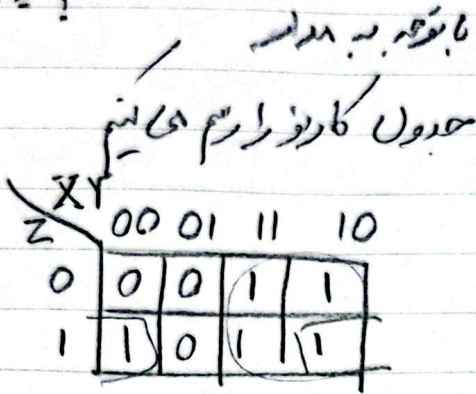 با توجه به مدار
جدول کارنو را رسم می کنیم
XY
Z 00 01 11 10
0 0 0 1 1
1 1 0 1 1